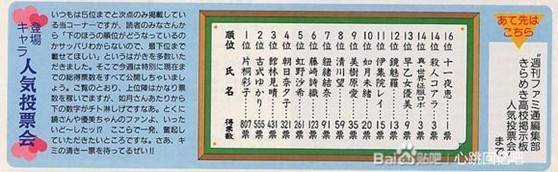 登場
キャラ
人気投票会
いつもは5位までと次点のみ掲載してい
る当コーナーですが、読者のみなさんか
ら「下のほうの順位がどうなっているの
かサッパリわからないので、最下位まで
載せてほしい」というはがきを多数いた
だきました。そこで今週は特別に現在ま
での総得票数をすべて公開しちゃいまし
ょう。ご覧のとおり、上位陣はかなり票
数を稼いでますが、如月さんあたりから
下の数字がチト淋しげですなあ。とくに
鏡さんや優美ちゃんのファンよ、いった
いどーしたッ!? ここらで一発、奮起し
ていただきたいところですな。さあ、キ
ミの清き一票を待ってるぜい!!
順位 氏名 得票数
1位 片桐彩子 807票
2位 古式ゆかり 555票
3位 館林見晴 431票
4位 朝日奈夕子 321票
5位 虹野沙希 261票
6位 藤崎詩織
7位 紐緒結奈
8位 清川望
9位 美樹原愛
10位 如月未緒
11位 伊集院レイ
12位 鏡魅羅
13位 早乙女優美
14位 真・世界征服ロボ
14位 殺人コアラ
16位 十一夜恵 1票
あて先は
こちら
“週刊ファミ通編集部
きらめき高校掲示板
人気投票会”
まで
Bai 百度 贴吧 心跳回忆吧